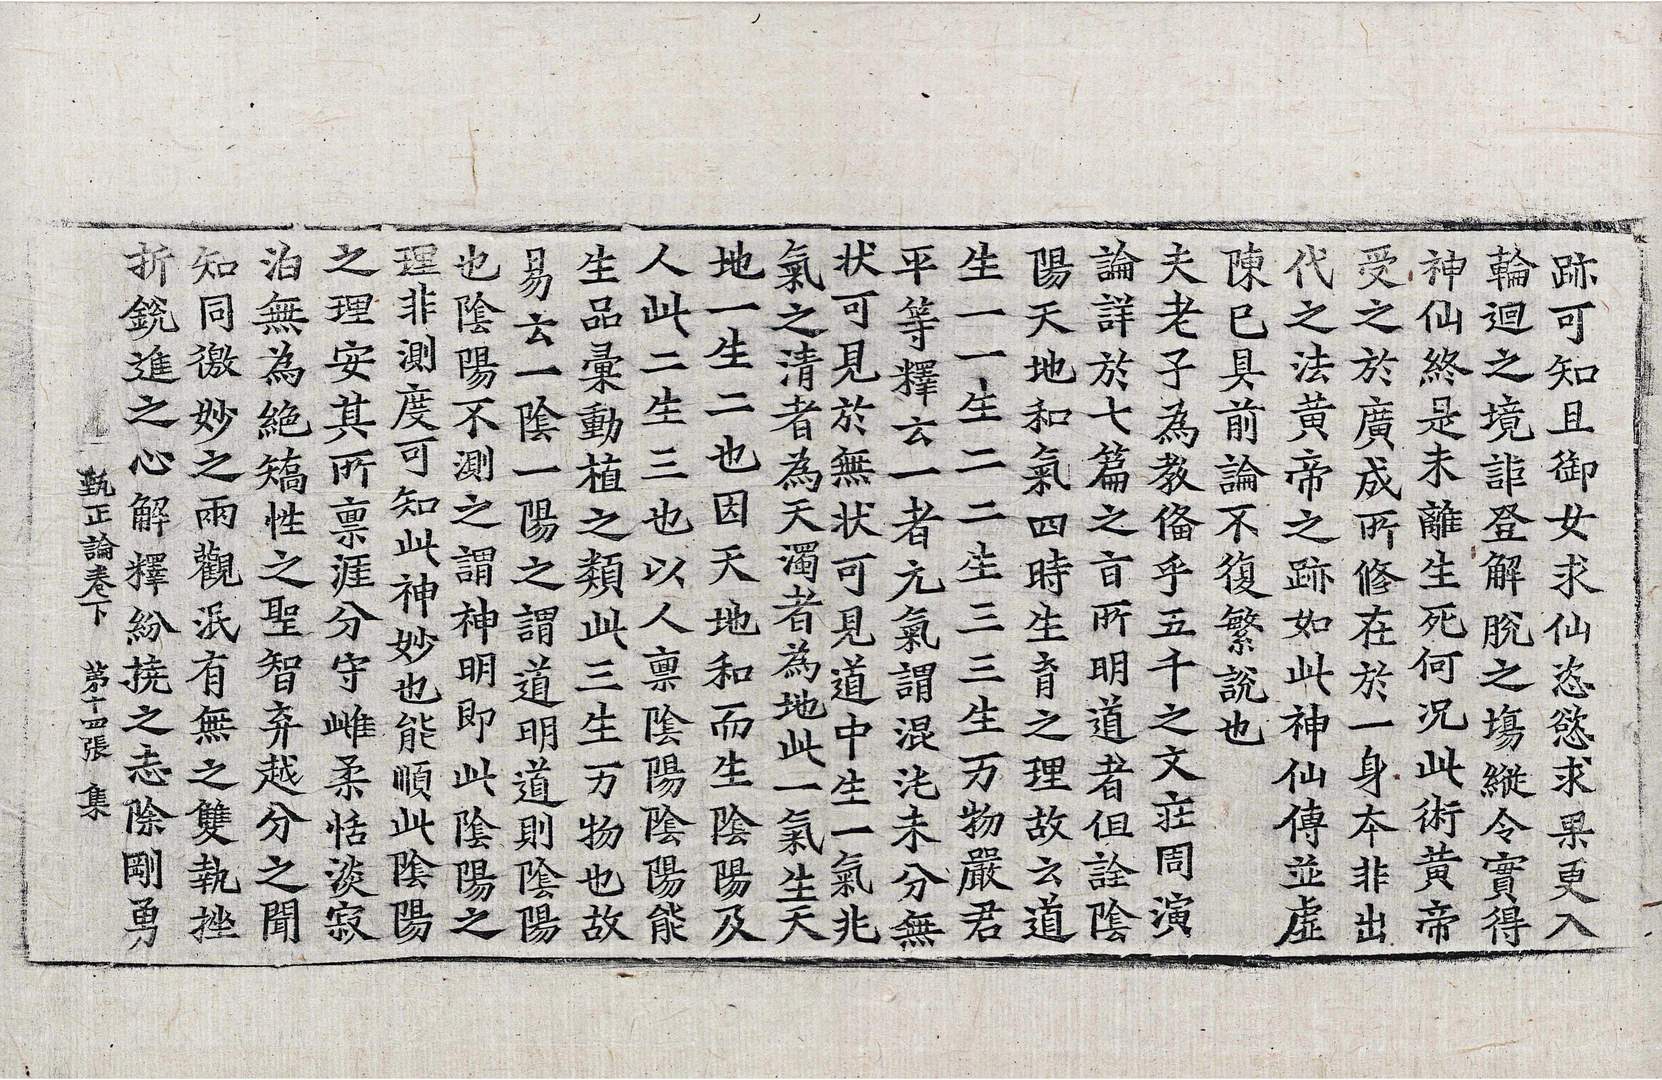 跡可知且御女求仙恣慾求果更入
輪迴之境詎登解脫之塲縱令實得
神仙終是未離生死何况此術黃帝
受之於廣成所修在於一身本非出
代之法黃帝之跡如此神仙傳並虛
陳已具前論不復繁說也
夫老子為教俻乎五千之文莊周演
論詳於七篇之旨所明道者但詮陰
陽天地和氣四時生育之理故云道
生一一生二二生三三生万物嚴君
平等釋云一者元氣謂混沌未分無
狀可見於無狀可見道中生一氣兆
氣之清者為天濁者為地此一氣生天
地一生二也因天地和而生陰陽及
人此二生三也以人禀陰陽陰陽能
生品彙動植之類此三生万物也故
易云一陰一陽之謂道明道則陰陽
也陰陽不測之謂神明即此陰陽之
理非測度可知此神妙也能順此陰陽
之理安其所禀涯分守雌柔恬淡寂
泊無為絕矯性之聖智弃越分之聞
知同徼妙之兩觀泯有無之雙執挫
折銳進之心解釋紛撓之志除剛勇
甄正論卷下 第十四張 集